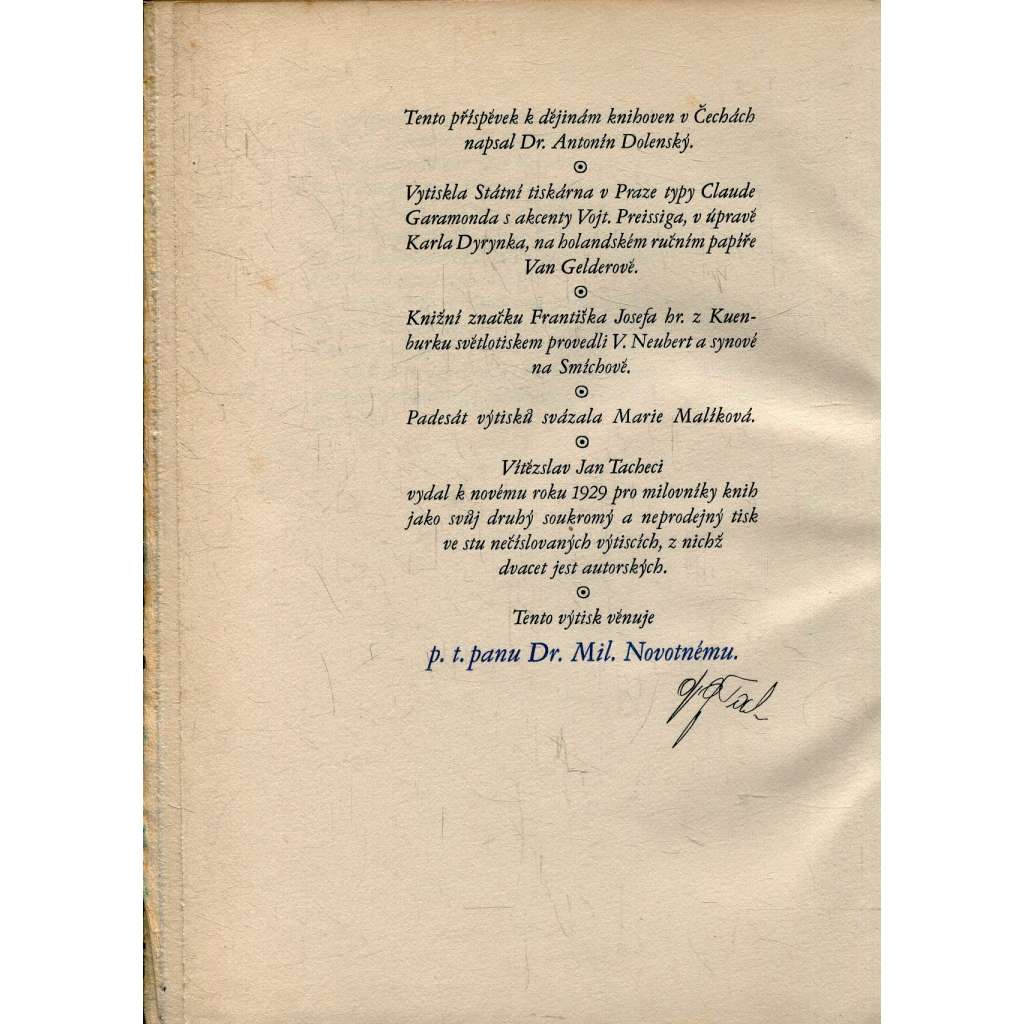 Tento příspěvek k dějinám knihoven v Čechách
napsal Dr. Antonín Dolenský.
Vytiskla Státní tiskárna v Praze typy Claude
Garamonda s akcenty Vojt. Preissiga, v úpravě
Karla Dyrynka, na holandském ručním papíře
Van Gelderově.
Knižní značku Františka Josefa hr. z Kuen-
burku světlotiskem provedli V. Neubert a synové
na Smíchově.
Padesát výtisků svázala Marie Malíková.
Vítězslav Jan Tacheci
vydal k novému roku 1929 pro milovníky knih
jako svůj druhý soukromý a neprodejný tisk
ve stu nečíslovaných výtiscích, z nichž
dvacet jest autorských.
Tento výtisk věnuje
p. t. panu Dr. Mil. Novotnému.